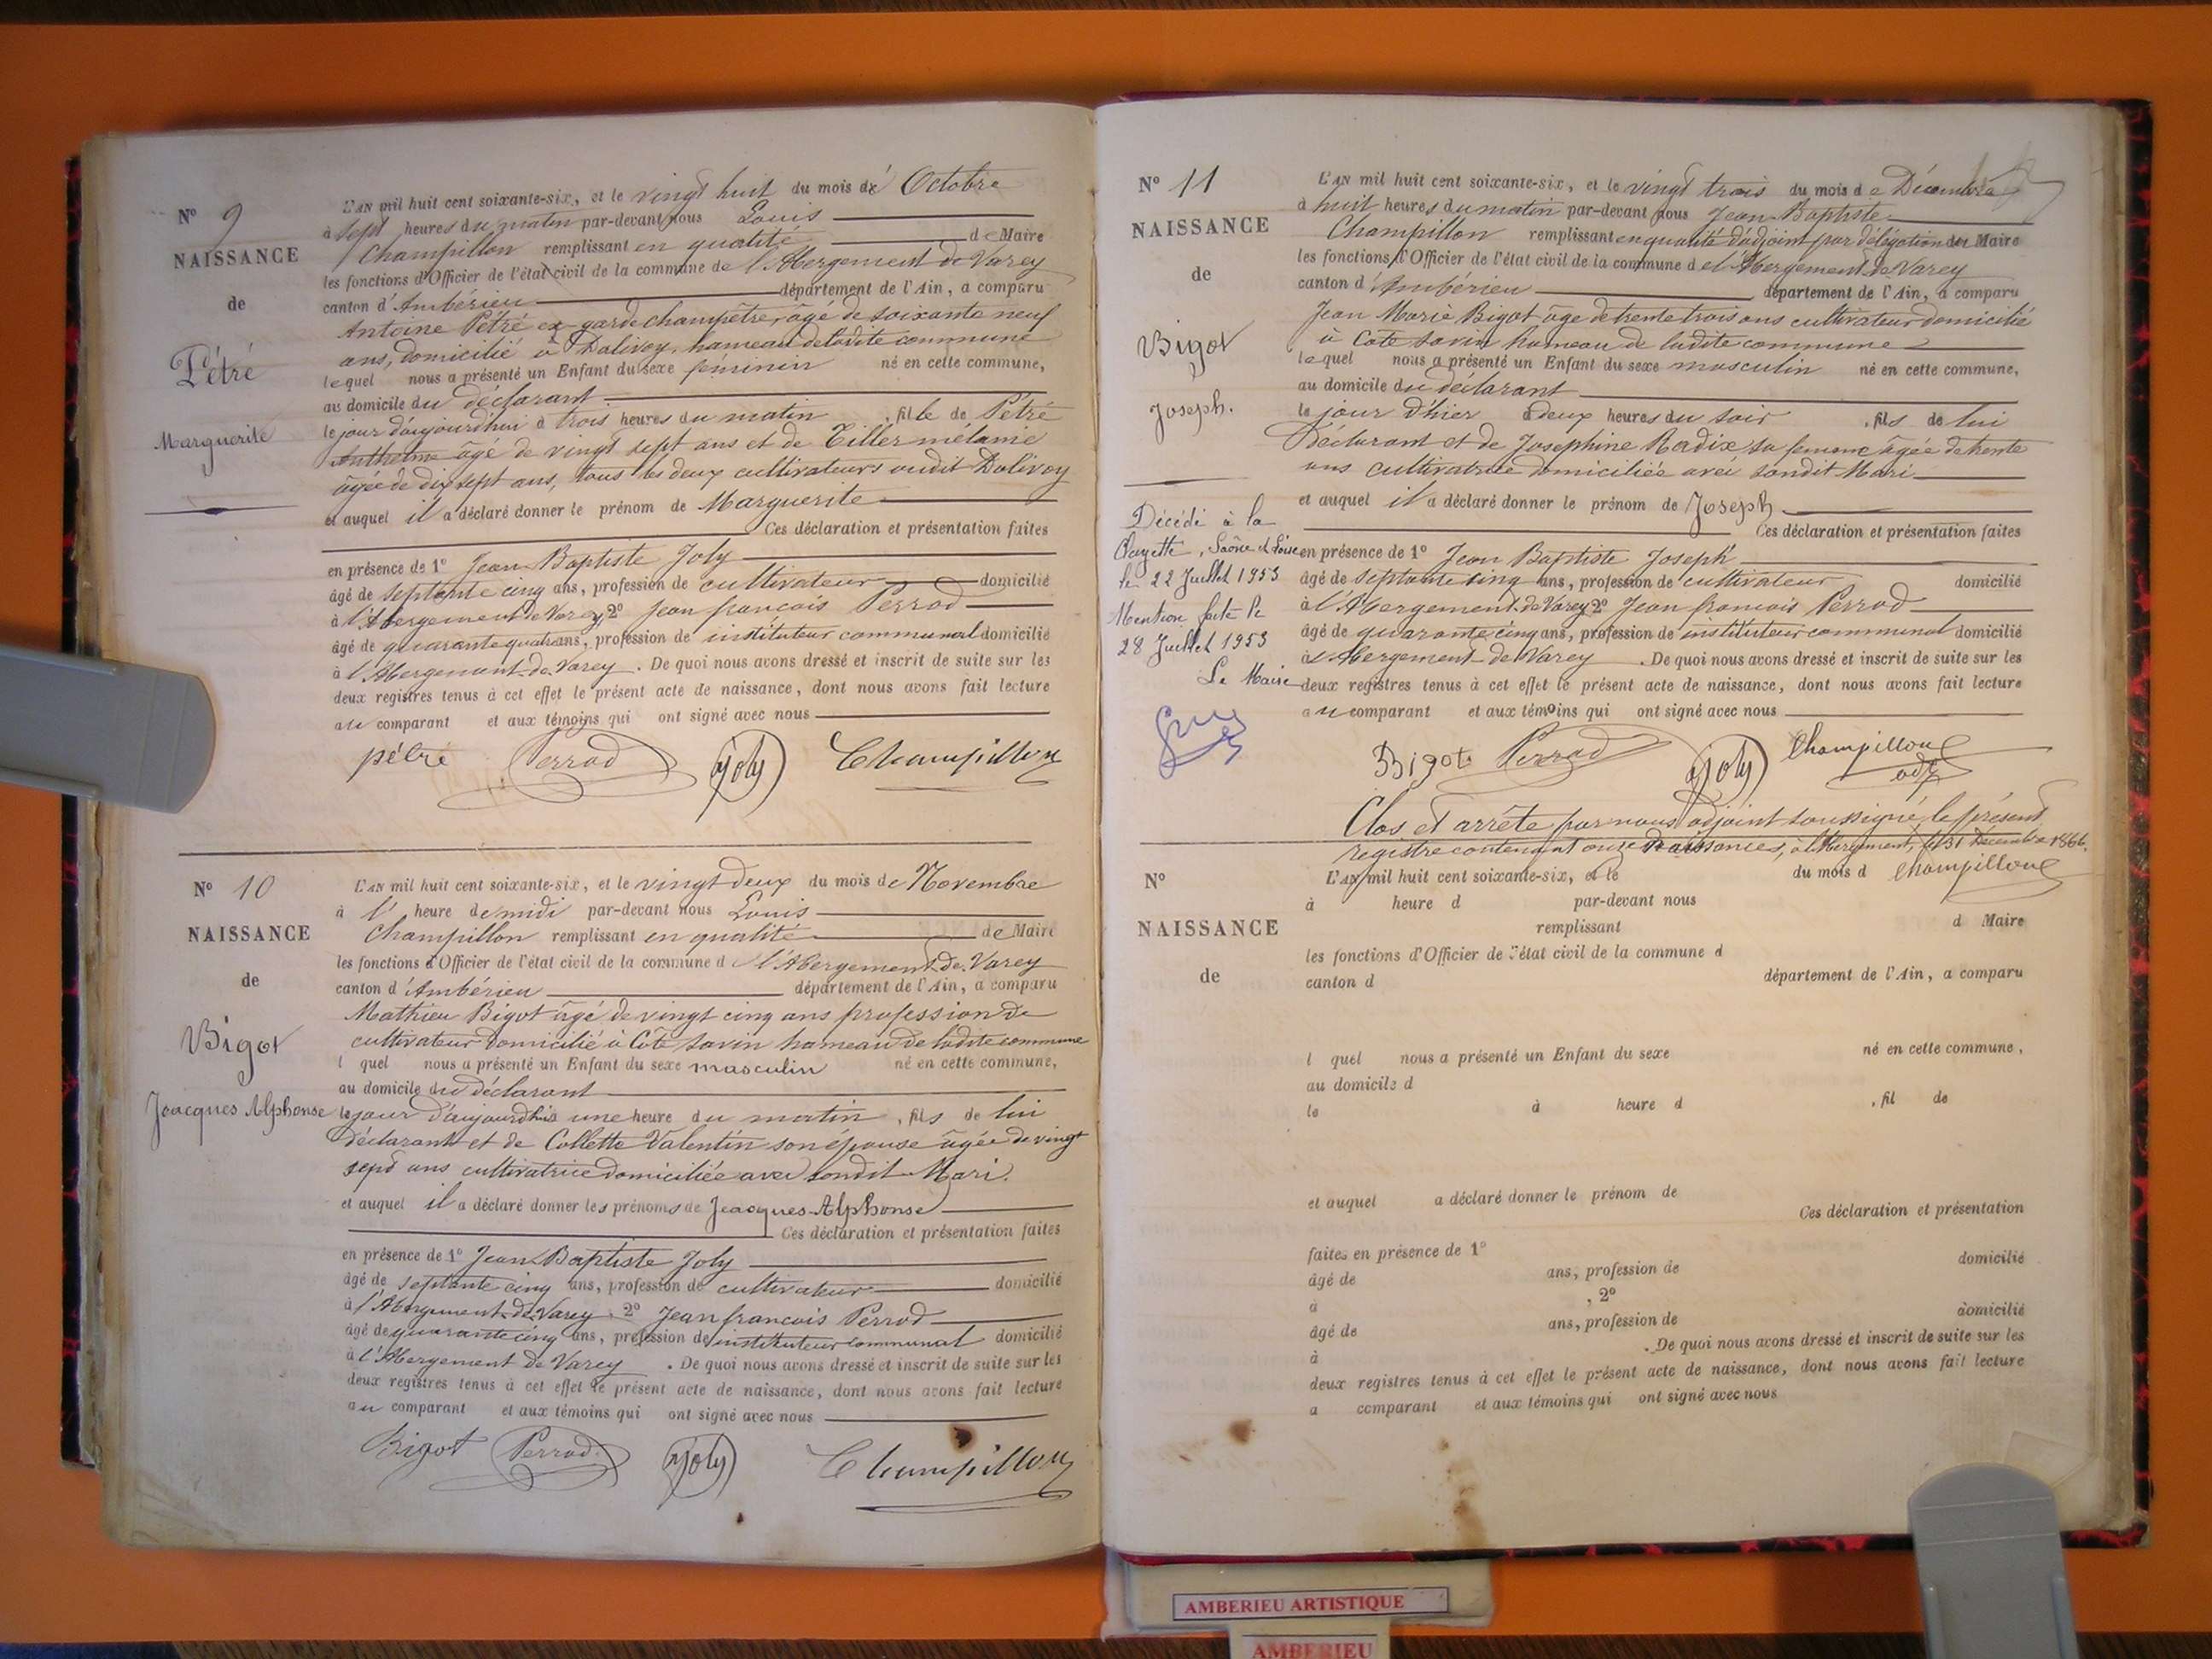 N° 9
NAISSANCE
de
Pétré
Marguerite
L'AN mil huit cent soixante-six, et le vingt huit du mois de Octobre
à sept heures du matin par-devant nous Louis
Champillon remplissant en qualité de Maire
les fonctions d'Officier de l'état civil de la commune de l'Abergement de Varey
canton d'Ambérieu département de l'Ain, a comparu
Antoine Pétré ex-garde champêtre, âgé de soixante neuf
ans, domicilié à Dalivoy, hameau de ladite commune
lequel nous a présenté un Enfant du sexe féminin né en cette commune,
au domicile du déclarant
le jour d'aujourd'hui à trois heures du matin, fille de Pétré
Anthelme âgé de vingt sept ans et de Tiller mélanie
âgée de dix sept ans, tous les deux cultivateurs audit Dalivoy
et auquel il a déclaré donner le prénom de Marguerite
Ces déclaration et présentation faites
en présence de 1° Jean Baptiste Joly
âgé de septante cinq ans, profession de cultivateur domicilié
à l'Abergement de Varey 2° Jean françois Perrod
âgé de quarante quatre ans, profession de instituteur communal domicilié
à l'Abergement de Varey. De quoi nous avons dressé et inscrit de suite sur les
deux registres tenus à cet effet le présent acte de naissance, dont nous avons fait lecture
au comparant et aux témoins qui ont signé avec nous
pétré Perrod Joly Champillon
N° 10
NAISSANCE
de
Bigot
Joacques Alphonse
L'AN mil huit cent soixante-six, et le vingt deux du mois de Novembre
à l' heure de midi par-devant nous Louis
Champillon remplissant en qualité de Maire
les fonctions d'Officier de l'état civil de la commune d l'Abergement de Varey
canton d'Ambérieu département de l'Ain, a comparu
Mathieu Bigot âgé de vingt cinq ans profession de
cultivateur domicilié à Côte Savin hameau de ladite commune
l quel nous a présenté un Enfant du sexe masculin né en cette commune,
au domicile du déclarant
le jour d'aujourd'hui à une heure du matin, fils de lui
déclarant et de Collette Valentin son épouse âgée de vingt
sept ans cultivatrice domiciliée avec sondit Mari.
et auquel il a déclaré donner les prénoms de Jeacques-Alphonse
Ces déclaration et présentation faites
en présence de 1° Jean Baptiste Joly
âgé de septante cinq ans, profession de cultivateur domicilié
à l'Abergement de Varey. 2° Jean francois Perrod
âgé de quarante cinq ans, profession de instituteur communal domicilié
à l'Abergement de Varey. De quoi nous avons dressé et inscrit de suite sur les
deux registres tenus à cet effet le présent acte de naissance, dont nous avons fait lecture
au comparant et aux témoins qui ont signé avec nous
Bigot Perrod Joly Champillon
N° 11
NAISSANCE
de
Bigot
Joseph.
Décédé à la
Clayette, Saône et Loire
le 22 Juillet 1953
Mention faite le
28 Juillet 1953
Le Maire
L'AN mil huit cent soixante-six, et le vingt trois du mois de Décembre
à huit heures du matin par-devant nous Jean-Baptiste
Champillon remplissant en qualité d'adjoint par délégation du Maire
les fonctions d'Officier de l'état civil de la commune de l'Abergement de Varey
canton d'Ambérieu département de l'Ain, a comparu
Jean Marie Bigot âge de trente trois ans cultivateur domicilié
à Côte Savin hameau de ladite commune
lequel nous a présenté un Enfant du sexe masculin né en cette commune,
au domicile du déclarant
le jour d'hier à deux heures du soir, fils de lui
Déclarant et de Josephine Radix sa femme âgée de trente
ans cultivatrice domiciliée avec sondit Mari
et auquel il a déclaré donner le prénom de Joseph
Ces déclaration et présentation faites
en présence de 1° Jean Baptiste Joseph
âgé de septante cinq ans, profession de cultivateur domicilié
à l'Abergement de Varey 2° Jean francois Perrod
âgé de quarante cinq ans, profession de instituteur communal domicilié
à l'Abergement de Varey. De quoi nous avons dressé et inscrit de suite sur les
deux registres tenus à cet effet le présent acte de naissance, dont nous avons fait lecture
au comparant et aux témoins qui ont signé avec nous
Bigot Perrod Joly Champillon
adj
Clos et arrêté par nous adjoint soussigné le présent
registre contenant onze Naissances, à l'Abergement, le 31 Décembre 1866.
Champillon
N°
NAISSANCE
de
L'AN mil huit cent soixante-six, et le du mois d
à heure d par-devant nous
remplissant d Maire
les fonctions d'Officier de l'état civil de la commune d
canton d département de l'Ain, a comparu
l quel nous a présenté un Enfant du sexe né en cette commune,
au domicile d
le à heure d , fil de
et auquel a déclaré donner le prénom de
Ces déclaration et présentation
faites en présence de 1°
âgé de ans, profession de domicilié
à , 2°
âgé de ans, profession de domicilié
à . De quoi nous avons dressé et inscrit de suite sur les
deux registres tenus à cet effet le présent acte de naissance, dont nous avons fait lecture
a comparant et aux témoins qui ont signé avec nous
AMBERIEU ARTISTIQUE
AMBERIEU